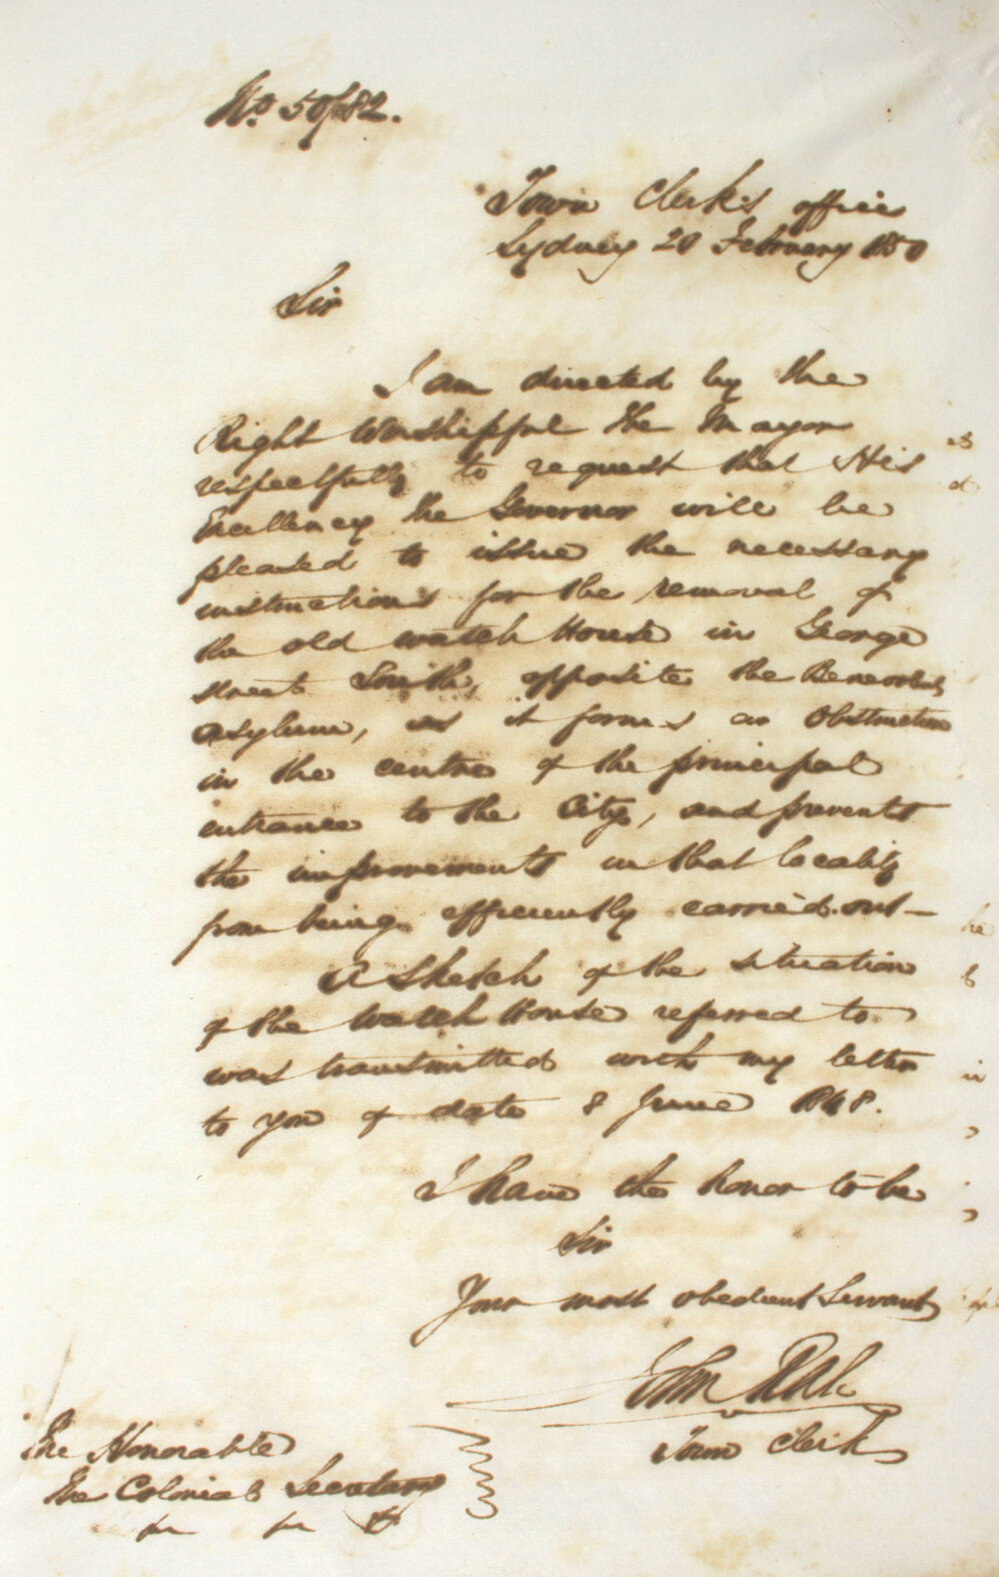 No. 50/82.
Town Clerk's office
Sydney 20 February 1850
Sir
I am directed by the
Right Worshipful the Mayor
respectfully to request that His
Excellency the Governor will be
pleased to issue the necessary
instructions for the removal of
the old watch House in George
street South, opposite the Benevolent
Asylum, as it forms an Obstruction
in the centre of the principal
entrance to the City, and prevents
the improvements in that locality
from being efficiently carried out—
A Sketch of the situation
of the Watch House referred to
was transmitted with my letter
to you of date 8 June 1848.
I have the honor to be
Sir
Your most obedient Servant
Town Clerk
The Honorable
The Colonial Secretary